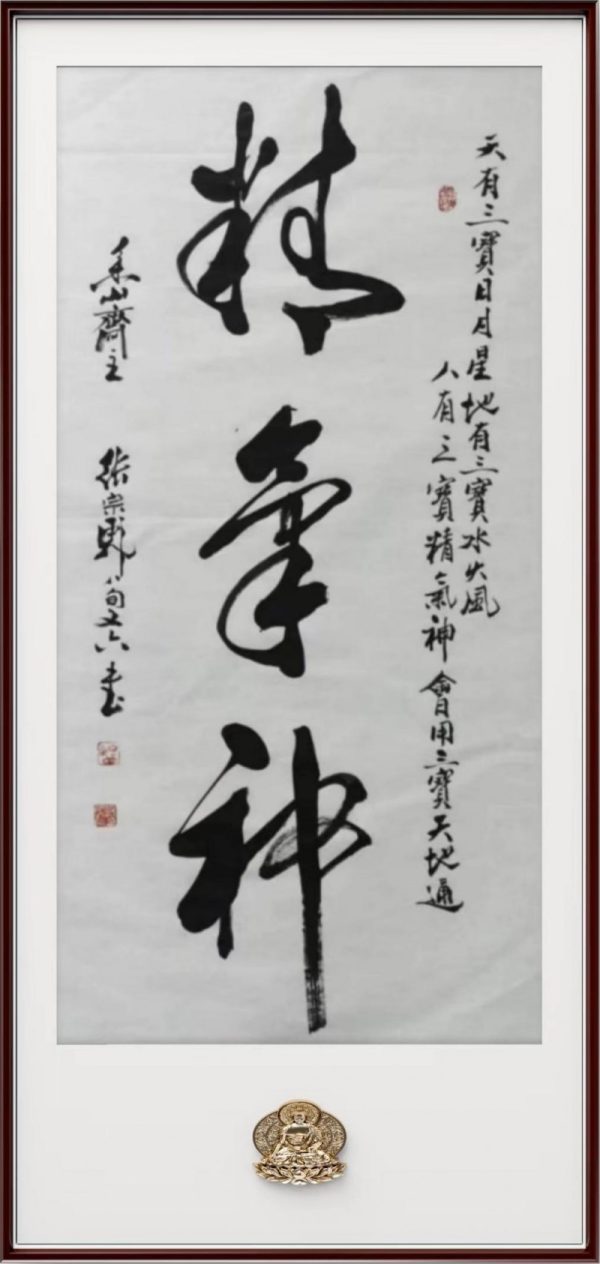 天有三寶日月星地有三寶水火風
人有三寶精氣神會用三寶天地通
精氣神
山齋主 張宗 八旬又六書